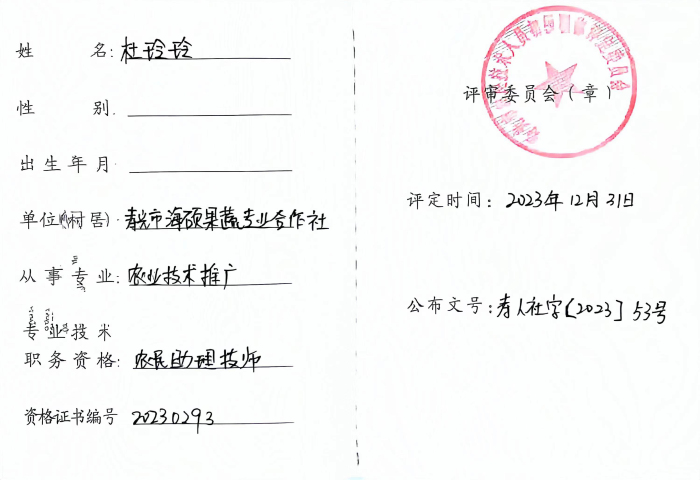 姓 名: 杜玲玲
性 别.
出生年月:
单位(村居): 寿光市海硕果蔬专业合作社
从事专业: 农业技术推广
专业技术
职务资格: 农民助理技师
资格证书编号 20230293
评审委员会(章)
评定时间: 2023年12月31日
公布文号: 寿人社字〔2023〕53号